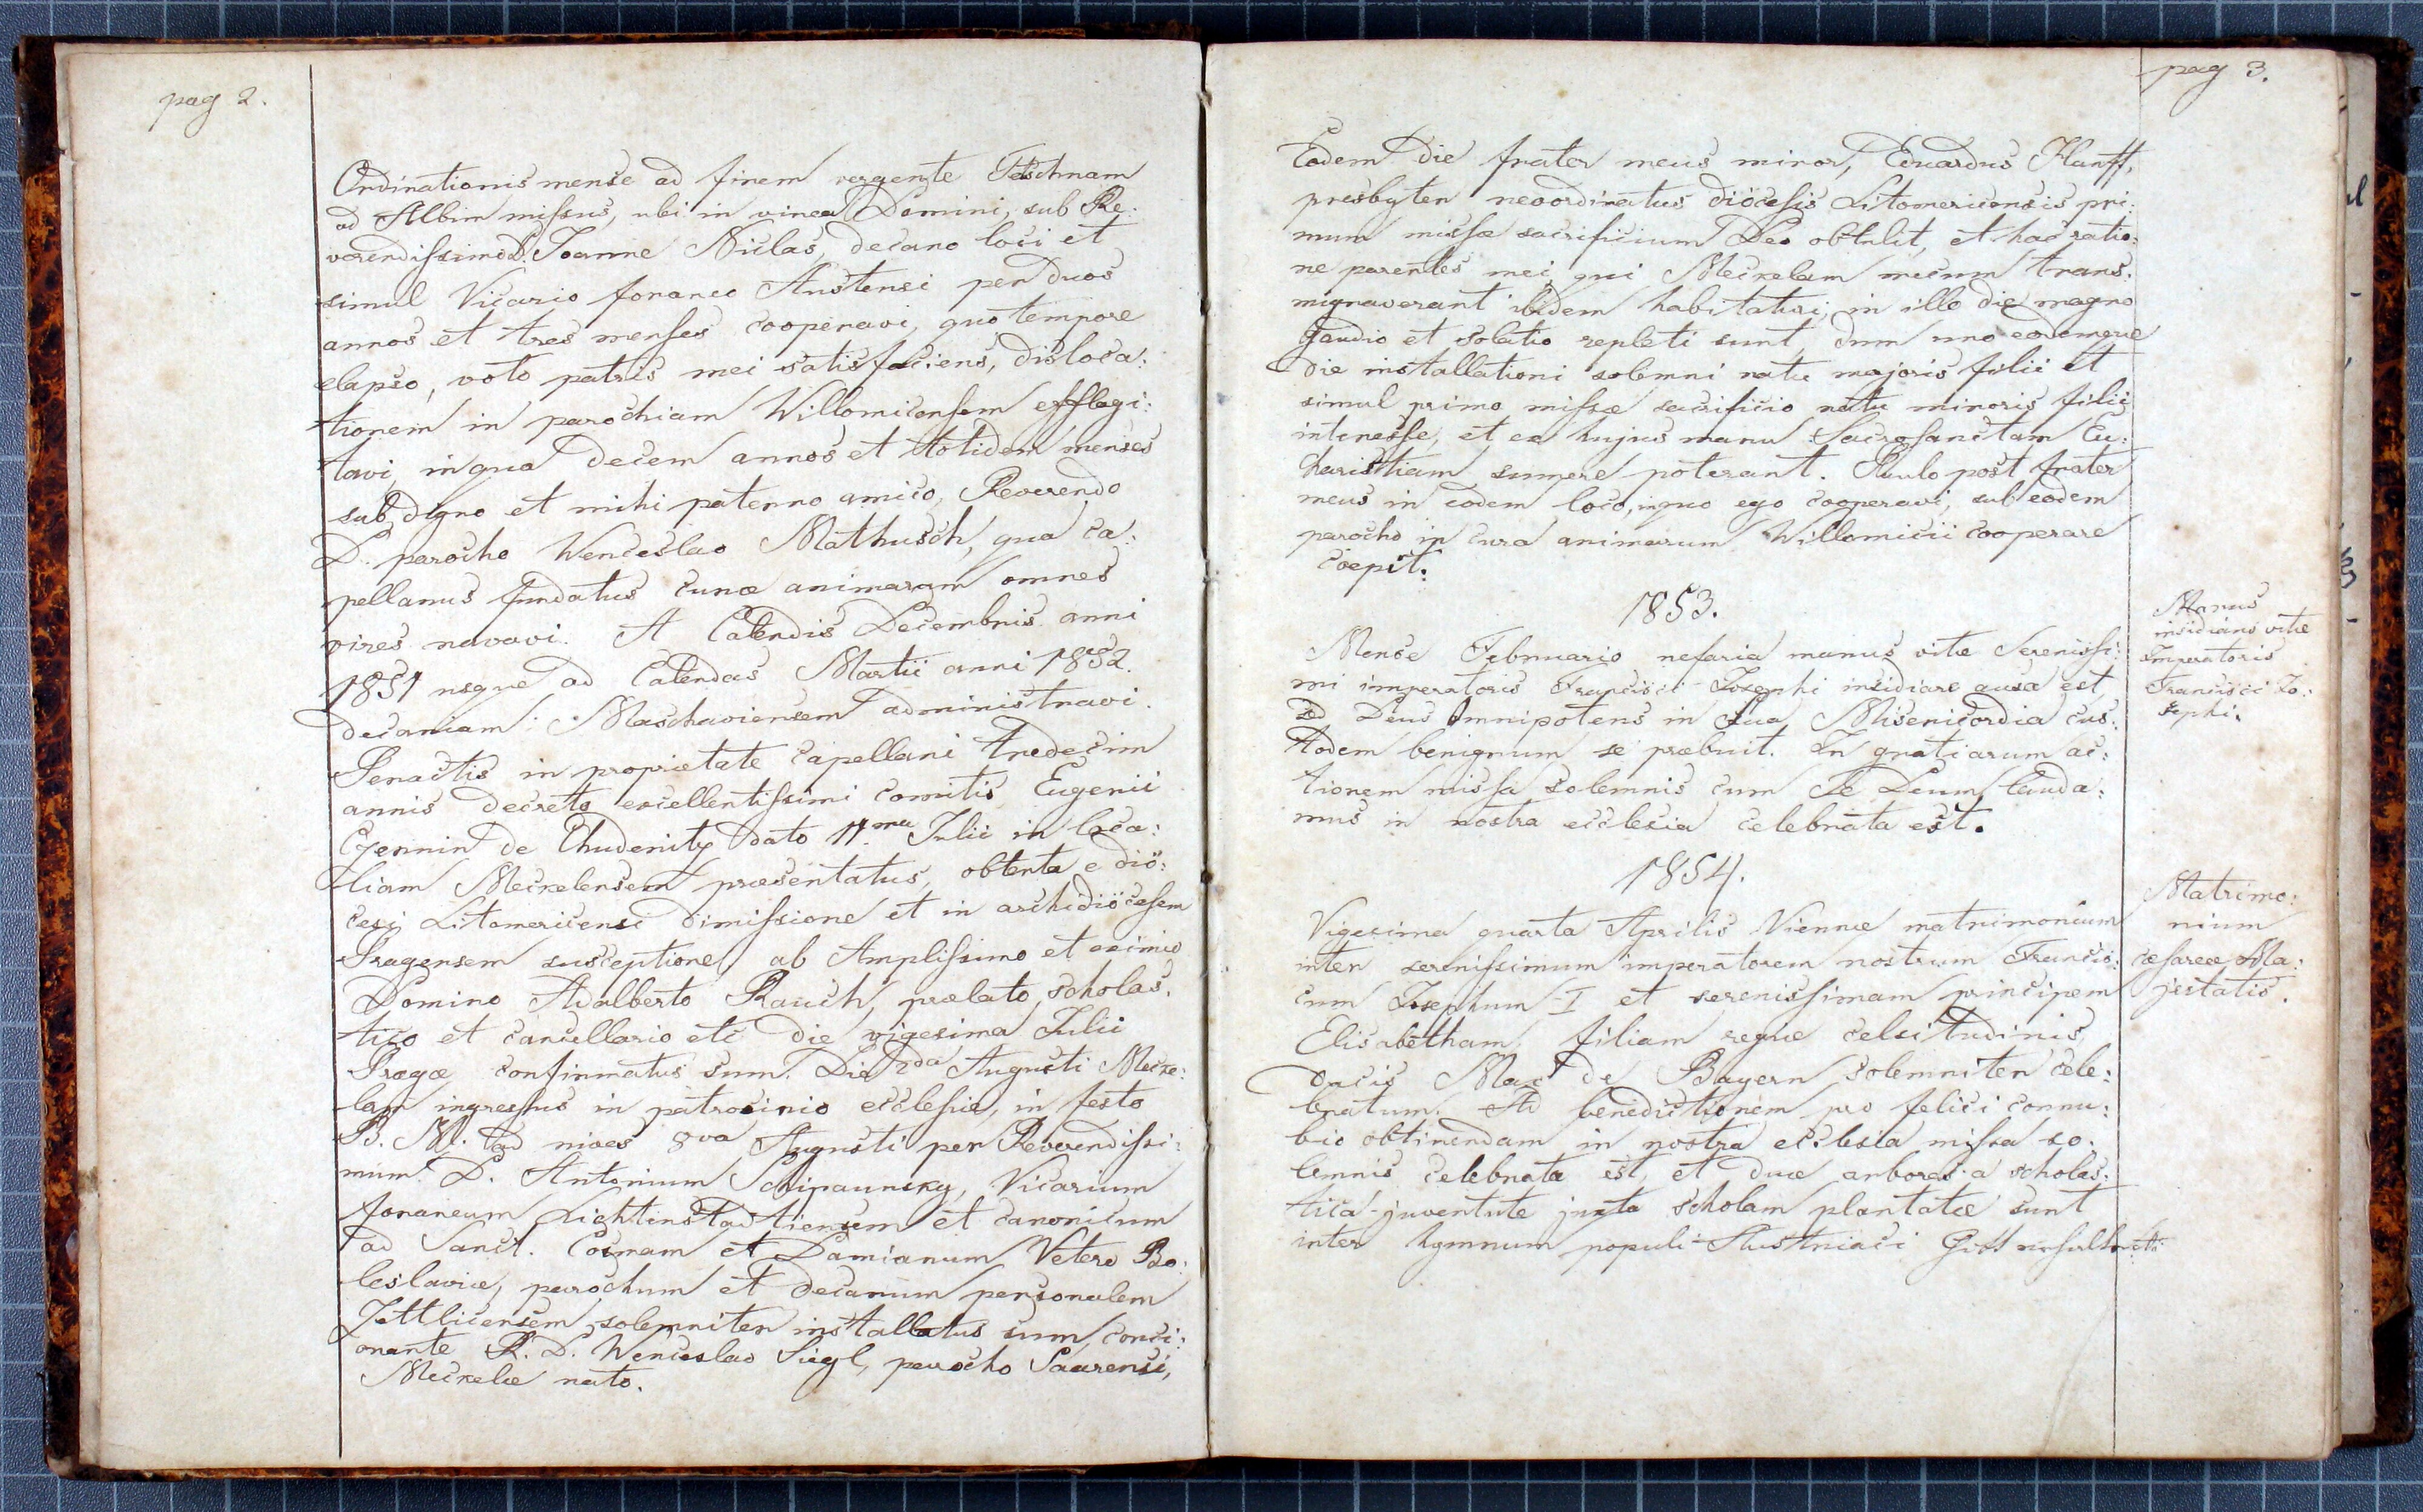 pag 2.
Ordinationis mense ad finem vergente Tetschnam
ad Albim missus, ubi in vinea Domini, sub Re:
verendissimo D. Joanne Niclas, decano loci et
simul Vicario foraneo Austensi per duos
annos et tres menses cooperavi, quo tempore
elapso, voto patris mei satisfaciens, disloca:
tionem in parochiam Willomicensem efflagi:
tavi, in qua decem annos et totidem menses
sub digno et mihi paterno amico, Reverendo
D. parocho Wenceslao Mathusch, qua ca:
pellanus fundatus curae animarum omnes
vires navavi. A Calendis Decembris anni
1851 usque ad Calendas Martii anni 1852.
decaniam Maschaviensem administravi.
Peractis in proprietate capellani tredecim
annis decreto excellentissimi comitis Eugenii
Czernin de Chudenitz dato 11.ma Julii in loca:
liam Meckelensem praesentatus, obtenta e diö:
cesi Litomericensi dimissione et in archidiöcesem
Pragensem susceptione, ab Amplissimo et eximio
Domino Adalberto Rauch, praelato, scholas.
tico et cancellario etc die vigesima Julii
Pragae confirmatus sum. Die 2da Augusti Mecke:
lam ingressus in patrocinio ecclesiae, in festo
B. M. ad nives 8va Augusti per Reverendissi:
mum D. Antonium Schipaunsky, Vicarium
foraneum Lichtenstadtiensem et canonicum
ad Sanct. Cosmam et Damianum Vetero Bo:
leslaviae, parochum et decanum personalem
Zettlicensem, solemniter installatus sum, conci:
onante R. D. Wenceslao Siegl, parocho Saarensi,
Meckelae nato.
pag 3.
Eodem die frater meus minor, Eduardus Hanff,
presbyter neoordinatus diöcesis Litomericensis pri:
mum missae sacrificium Deo obtulit, et hac ratio:
ne parentes mei, qui Meckelam mecum trans:
migraverant ibidem habitaturi, in illo die magno
gaudio et solatio repleti sunt, dum uno eodemque
die installationi solemni natu majoris filii et
simul primo missae sacrificio natu minoris filii
interesse, et ex hujus manu Sacrosanctam Eu:
charistiam sumere poterant. Paulo post frater
meus in eodem loco, in quo ego cooperavi, sub eodem
parocho in cura animarum Willomicii cooperare
coepit.
1853.
Manus
insidians vitae
Imperatoris
Francisci Jo:
sephi.
Mense Februario nefaria manus vitae Serenissi:
mi imperatoris Francisci Josephi insidiare ausa est,
sed Deus Omnipotens in sua Misericordia cus:
todem benignum se praebuit. In gratiarum ac:
tionem missa solemnis cum Te Deum lauda:
mus in nostra ecclesia celebrata est.
1854.
Matrimo:
nium
caesareae Ma:
jestatis.
Vigesima quarta Aprilis Viennae matrimonium
inter serenissimum imperatorem nostrum Francis:
cum Josephum I et serenissimam principem
Elisabetham, filiam regiae celsitudinis,
ducis Max de Bayern solemniter cele:
bratum. Ad benedictionem pro felici connu:
bio obtinendam in nostra ecclesia missa so.
lemnis celebrata est, et duae arbores a scholas:
tica juventute juxta scholam plantatae sunt
inter hymnum populi Austriaci Gott erhalte etc